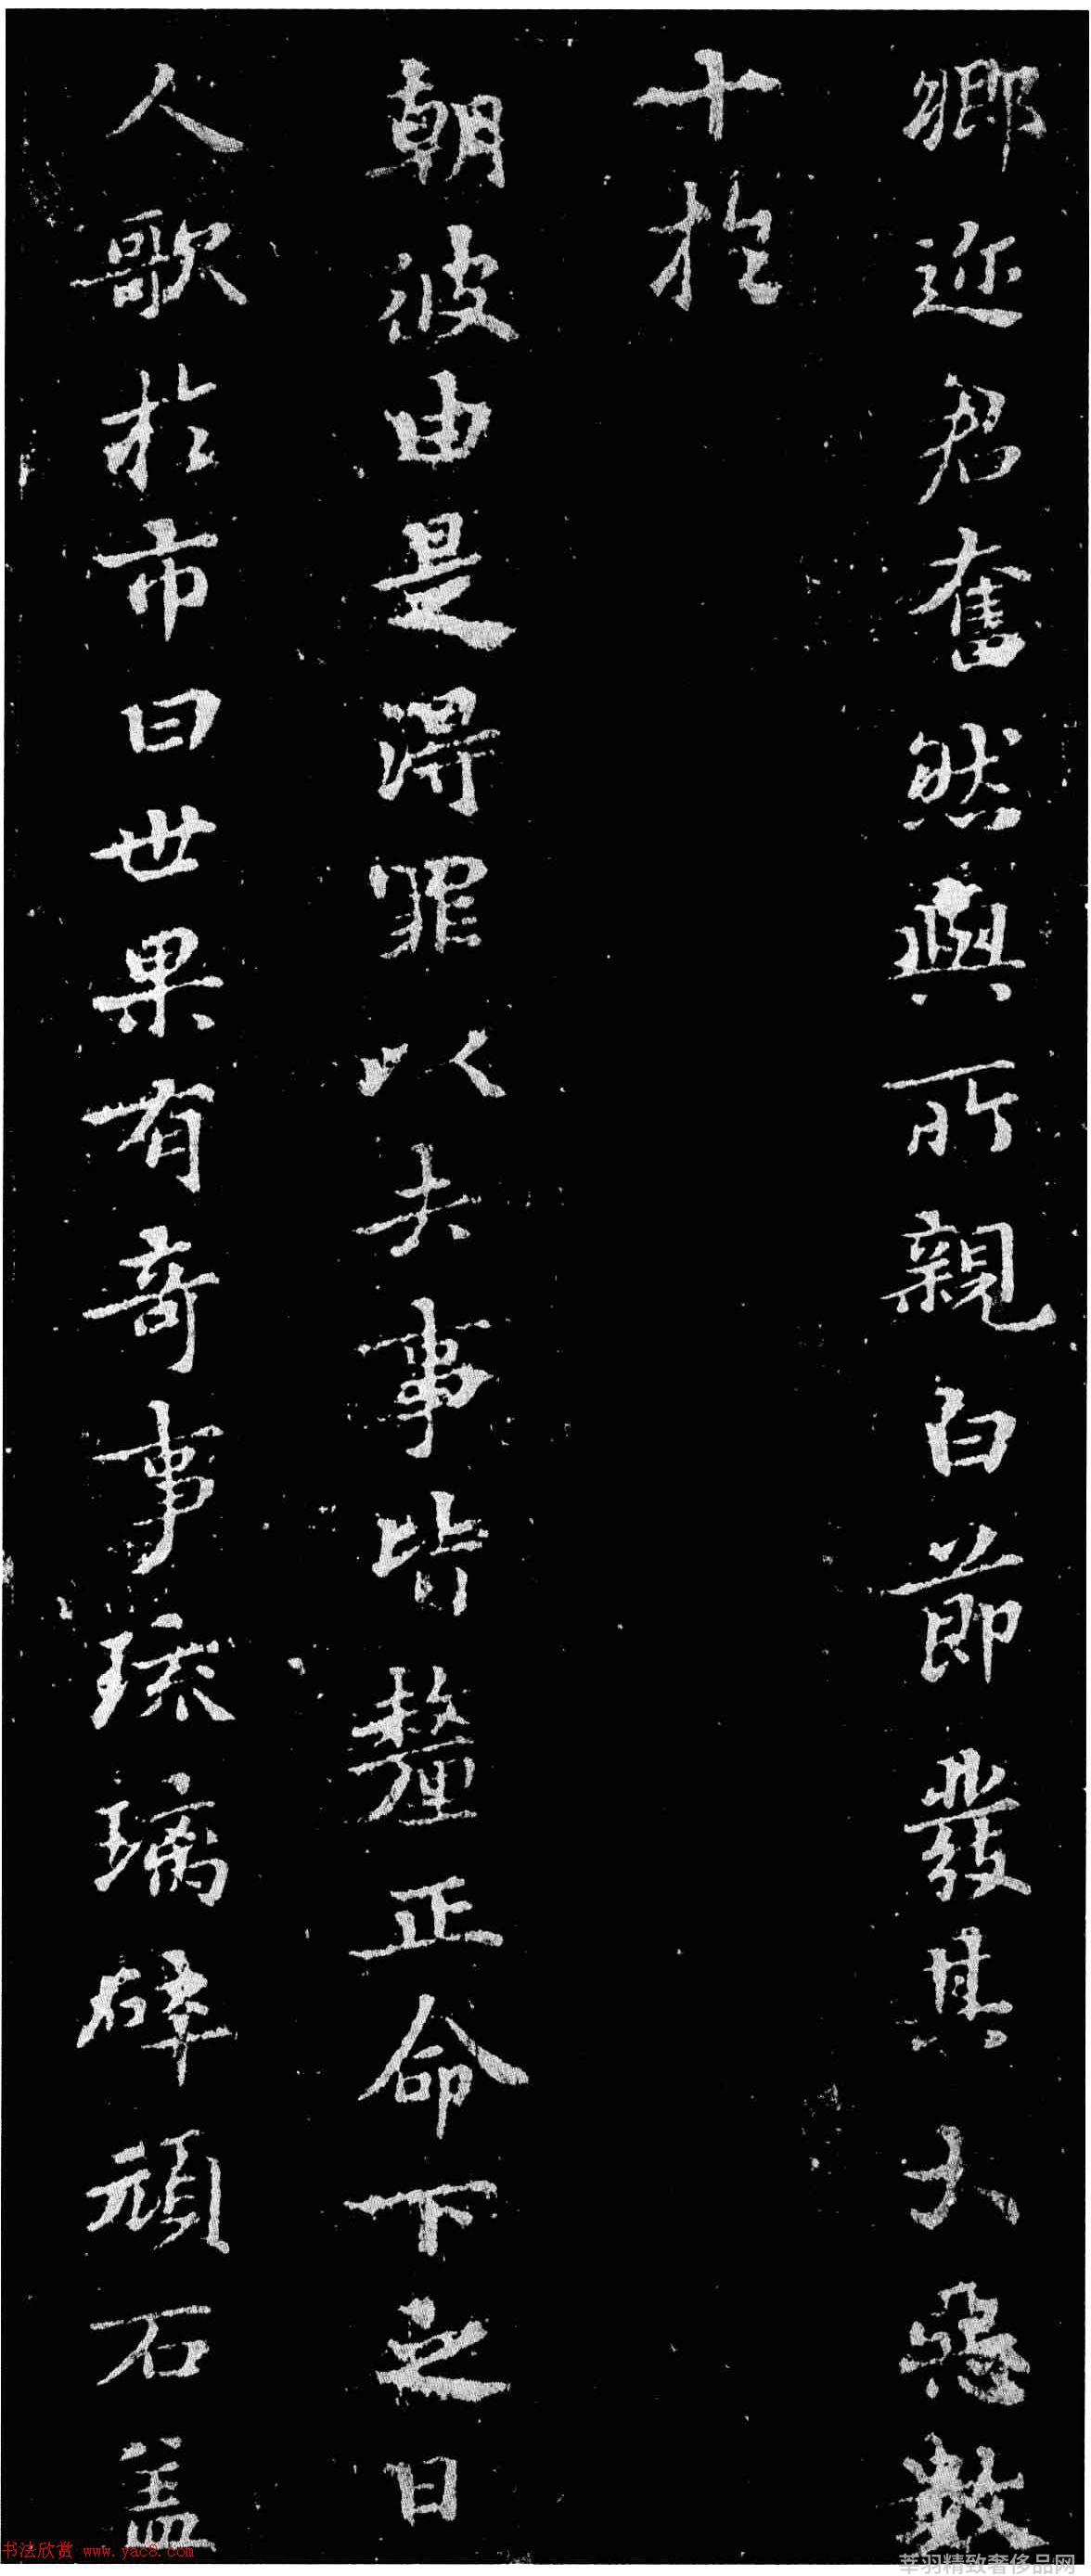 卿迩君奮然與所親白節發其大惡數
十於
朝彼由是得罪以去事皆釐正命下之日
人歌於市曰世果有奇事琉璃碎頑石蓋
书法欣赏 www.yac8.com
莘羽精致奢侈品网